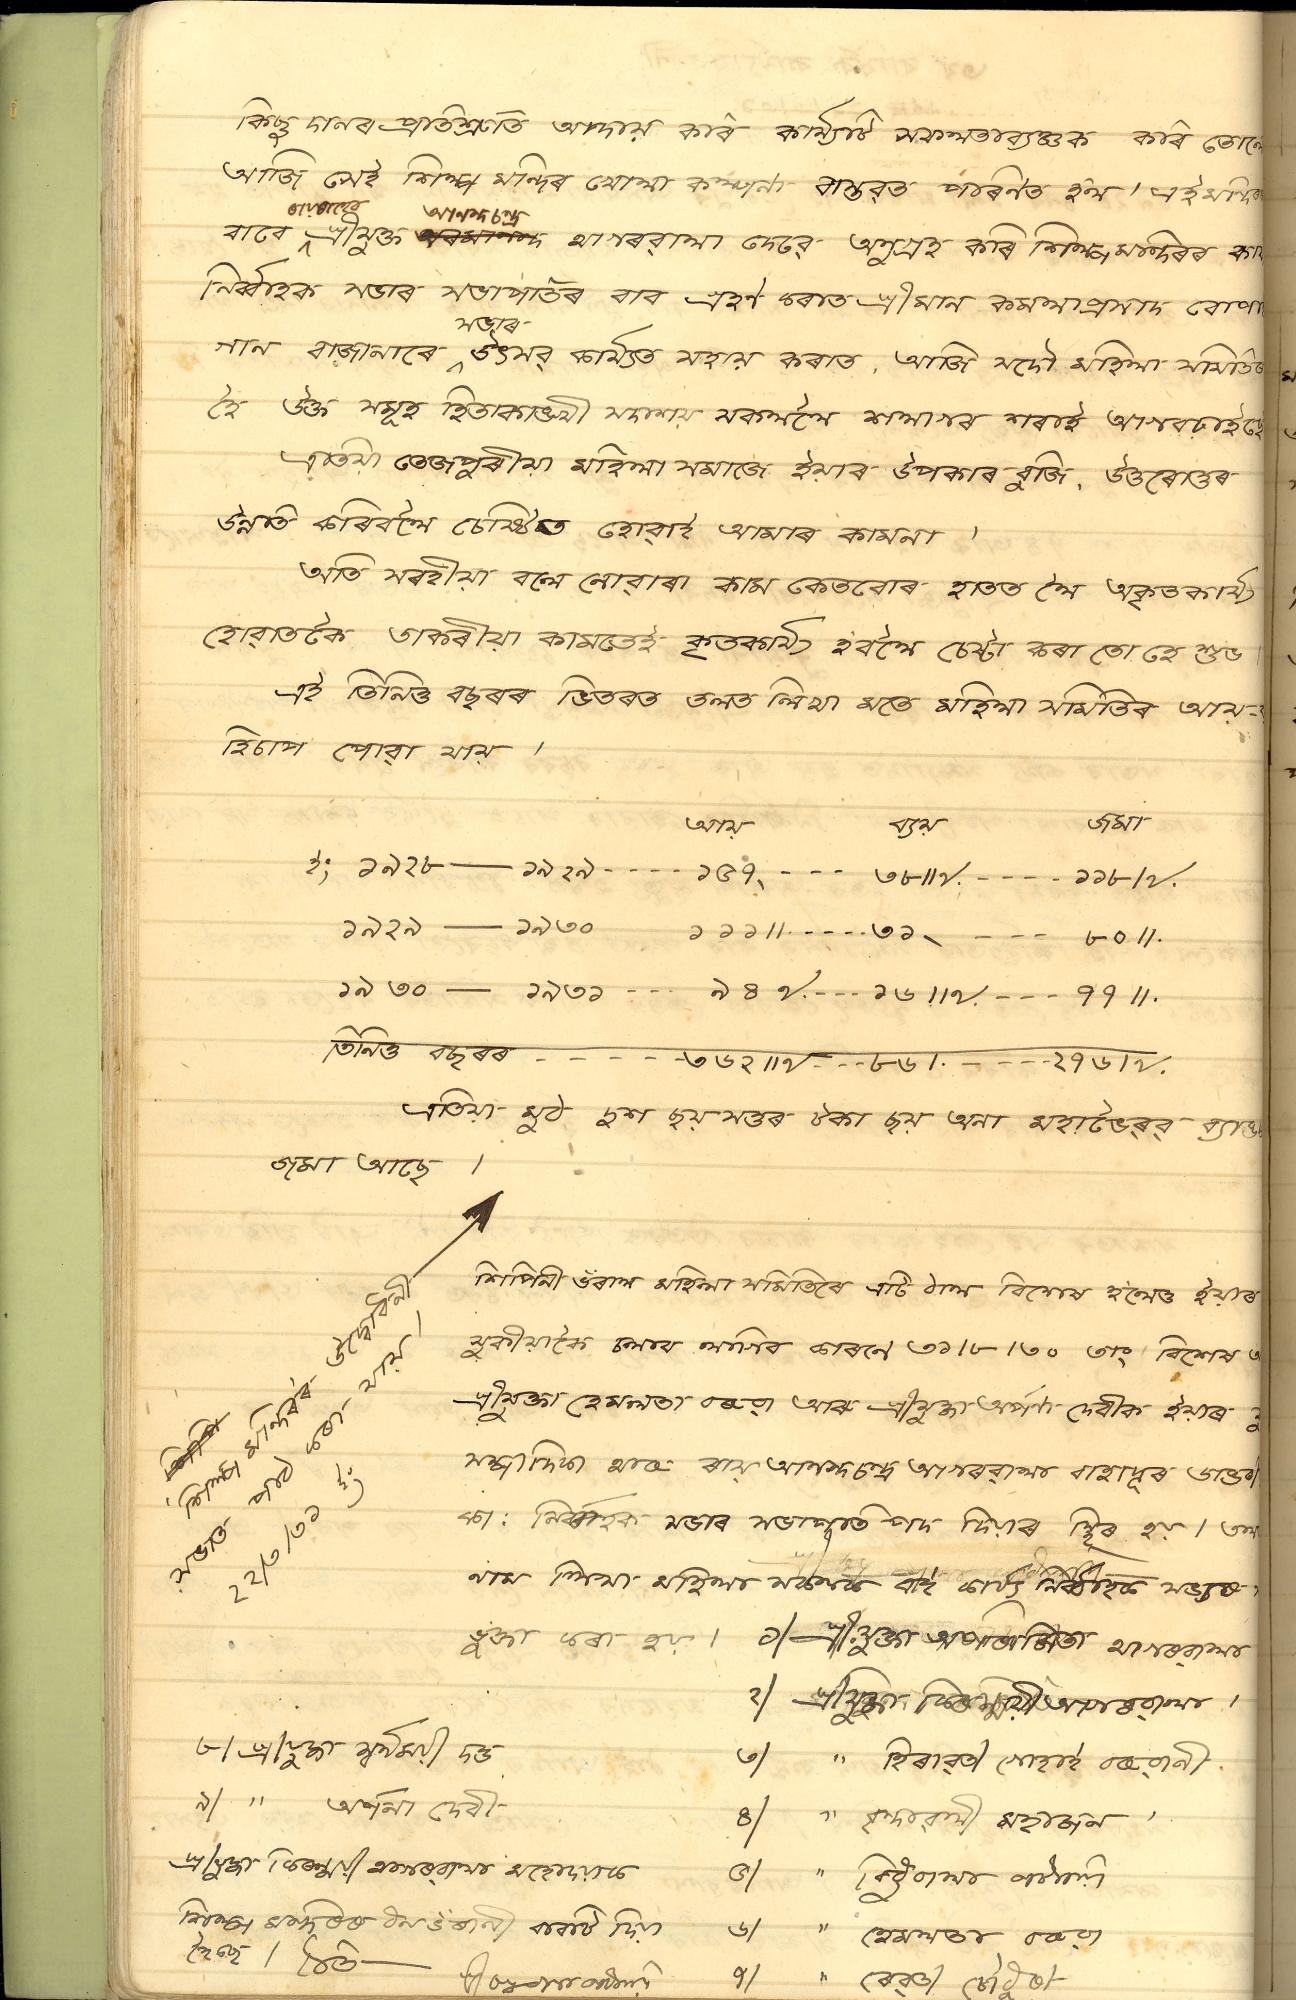 কিছু দানৰ প্ৰতিশ্ৰুতি আদায় কৰি কাৰ্য্যটি সফলতাব্যঞ্জক কৰি তোলে
আজি সেই শিল্প মন্দিৰ খোলা কল্পনা বাস্তৱত পৰিণত হ'ল। এই মন্দিৰ
বাবে শ্ৰীযুক্ত আনন্দচন্দ্ৰ আগৰৱালা দেৱে অনুগ্ৰহ কৰি শিল্প মন্দিৰৰ
নিৰ্ব্বাহক সভাৰ সভাপতিৰ বাব গ্ৰহণ কৰাত শ্ৰীমান কমলাপ্ৰসাদ
গান বাজানাৰে সভাৰ উৎসৱ কাৰ্য্যত সহায় কৰাত, আজি সদৌ মহিলা সমিতিৰ
হৈ উক্ত সমূহ হিতাকাঙ্ক্ষী সদাশয় সকললৈ শলাগৰ শৰাই আগবঢ়াইছে
এতিয়া তেজপুৰীয়া মহিলা সমাজে ইয়াৰ উপকাৰ বুজি, উত্তৰোত্তৰ
উন্নতি কৰিবলৈ চেষ্টিত হোৱাই আমাৰ কামনা।
অতি সৰহীয়া বলে নোৱাৰা কাম কেতবোৰ হাতত লৈ অকৃতকাৰ্য্য
হোৱাতকৈ তাকৰীয়া কামতেই কৃতকাৰ্য্য হ'বলৈ চেষ্টা কৰা তো হে শুভ।
এই তিনিও বছৰৰ ভিতৰত তলত লিখা মতে মহিলা সমিতিৰ আয়-
হিচাপ পোৱা যায়।
আয় ব্যয় জমা
ইং ১৯২৮ — ১৯২৯ ---- ১৫৭৲ --- ৩৮॥৵. ---- ১১৮।৵.
১৯২৯ — ১৯৩০ ১১১॥. ---- ৩১৲ --- ৮০॥.
১৯৩০ — ১৯৩১ --- ৯৪৵. --- ১৬॥৵. --- ৭৭॥.
তিনিও বছৰৰ ----- ৩৬২॥৵ --- ৮৬।. ---- ২৭৬।৵.
এতিয়া মুঠ দুশ ছয়সত্তৰ টকা ছয় অনা মহাভৈৰৱ
জমা আছে।
শিল্প মন্দিৰৰ উদ্বোধনী
সভাত পাঠ কৰা যায়।
২২/৩/৩১ ইং
শিপিনী ভঁৰাল মহিলা সমিতিৰে এটি ঠাল বিশেষ হ'লেও ইয়াৰ
সুকীয়াকৈ চলাব লাগিব কাৰণে ৩১।৮।৩০ তাং বিশেষ
শ্ৰীযুক্তা হেমলতা বৰুৱা আৰু শ্ৰীযুক্তা অৰ্পণা দেবীক ইয়াৰ
আৰু ৰায় আনন্দচন্দ্ৰ আগৰৱালা বাহাদুৰ
কা: নিৰ্ব্বাহক সভাৰ সভাপতি পদ দিয়াৰ স্থিৰ হয়।
নাম লিখা মহিলা সকলক বাই কাৰ্য্য নিৰ্ব্বাহক
ভুক্তা কৰা হয়। ১/ শ্ৰীযুক্তা আগৰৱালা
২/ শ্ৰীযুক্তা কিৰণময়ী আগৰৱালা।
৩/ " হিৰাৱতী গোহাই বৰুৱানী
৪/ " মহাজন
৫/ "
৬/ " হেমলতা বৰুৱা
৭/ " ৰেৱতী চৌধুৰী
৮/ শ্ৰীযুক্তা স্বৰ্ণময়ী দত্ত
৯/ " অৰ্পনা দেবী
শ্ৰীযুক্তা কিৰণময়ী আগৰৱালা মহোদয়াক
শিল্প মন্দিৰৰ বাবটি দিয়া
হৈছে। ইতি—